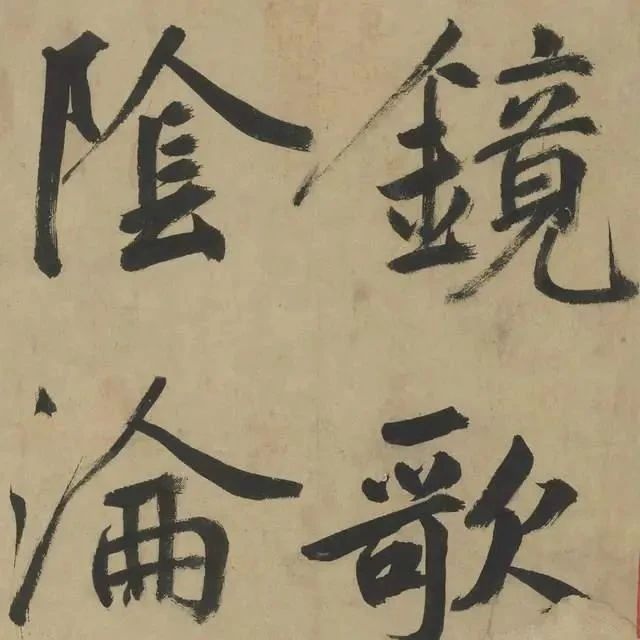 鏡歌
陰淪